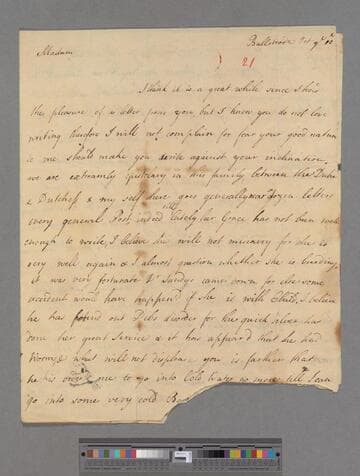 Bullstrode Oct ye 9th
Madam
21
I think it is a great while since I had
the pleasure of a letter from you, but I know you do not love
writing therefore I will not complain for fear your good nature
to me should make you write against your inclination.
we are extreamly epistolary in this family between the Duke
& Dutchess & my self there goes generally a dozen letters
every general Post indeed lately her Grace has not been well
enough to write, I believe she will not miscarry for she is
very well again & I almost question whether she is breeding,
it was very fortunate Dr Sandys came down for else some
accident would have happen'd if she is with Child, I believe
he has found out disorder for the quick silver has
done her great Service & it has appear'd that she had
Worms, & what will not displease you is farther that
he has order'd me to go into Cold Water no more till I can
go into some very cold B